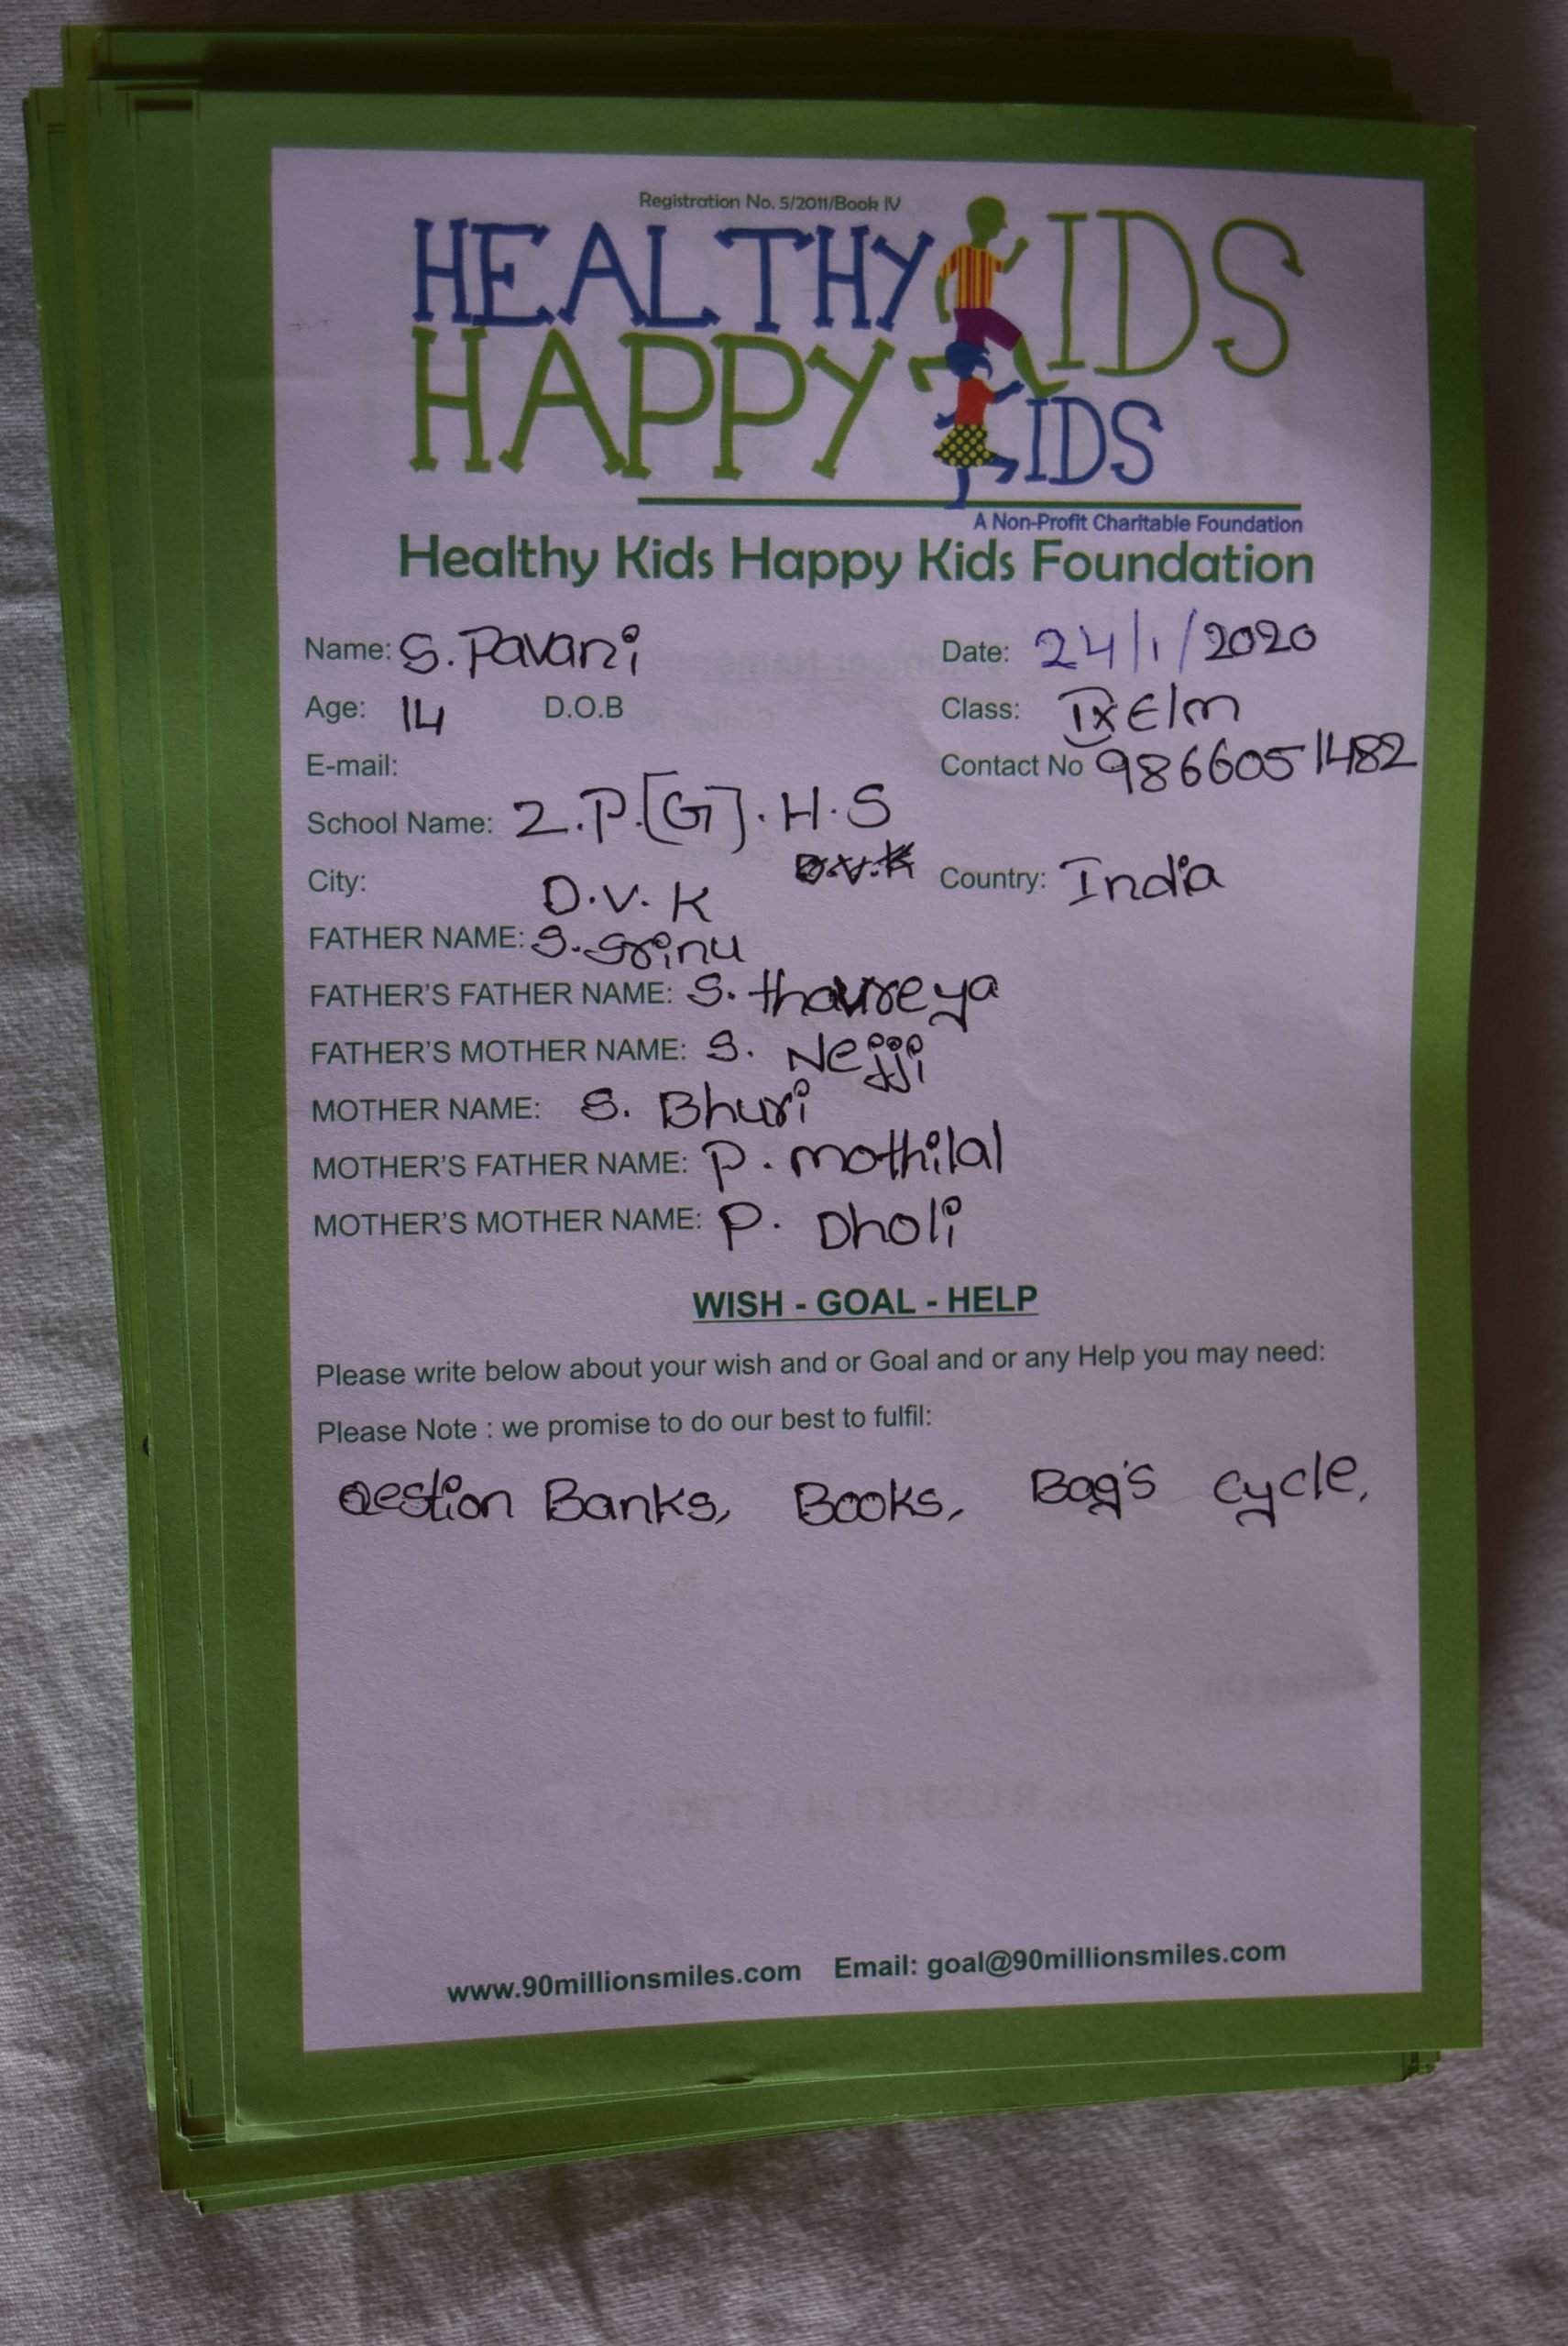 Registration No. 5/2011/Book IV
HEALTHY KIDS
HAPPY KIDS
A Non-Profit Charitable Foundation
Healthy Kids Happy Kids Foundation
Name: S. Pavani Date: 24/1/2020
Age: 14 D.O.B Class: IX E/m
E-mail: Contact No 9866051482
School Name: Z.P.[G].H.S
City: D.V.K Country: India
FATHER NAME: S. Srinu
FATHER'S FATHER NAME: S.
FATHER'S MOTHER NAME: S. Nejji
MOTHER NAME: S. Bhuri
MOTHER'S FATHER NAME: P. mothilal
MOTHER'S MOTHER NAME: P. Dholi
WISH - GOAL - HELP
Please write below about your wish and or Goal and or any Help you may need:
Please Note : we promise to do our best to fulfil:
Qestion Banks, Books, Bag's cycle,
www.90millionsmiles.com Email: goal@90millionsmiles.com